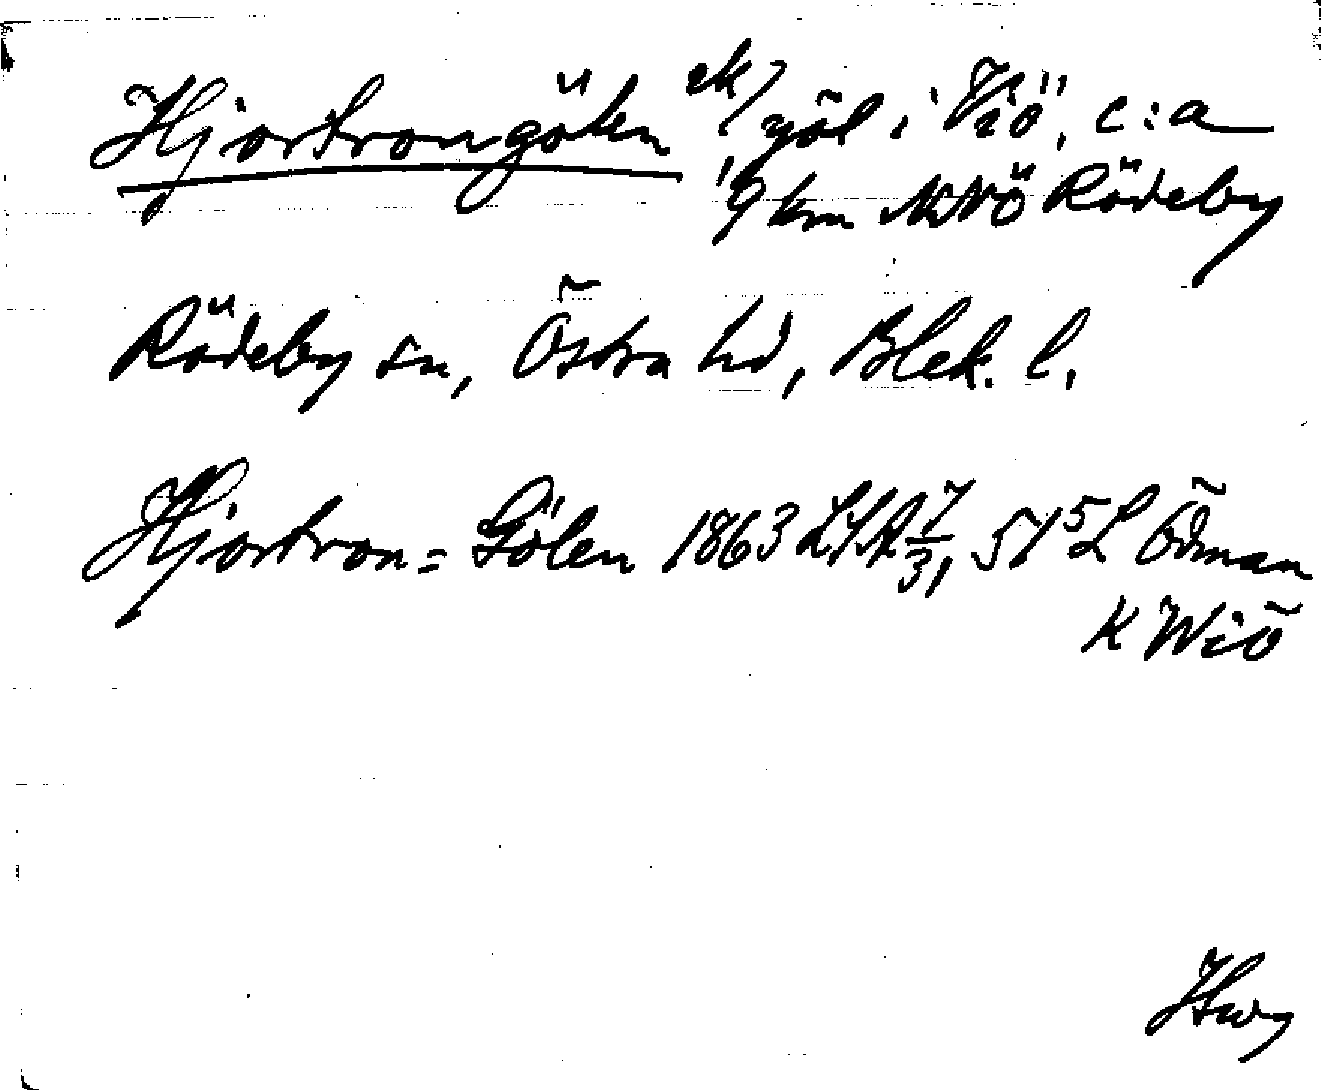 Hjortrongölen göl i Viö, c:a
9 km NNÖ Rödeby
Rödeby sn, Östra hd, Blek. l.
Hjortron= Gölen 1863 LSA 7/3, 51 5 L Ödman
K Wiö